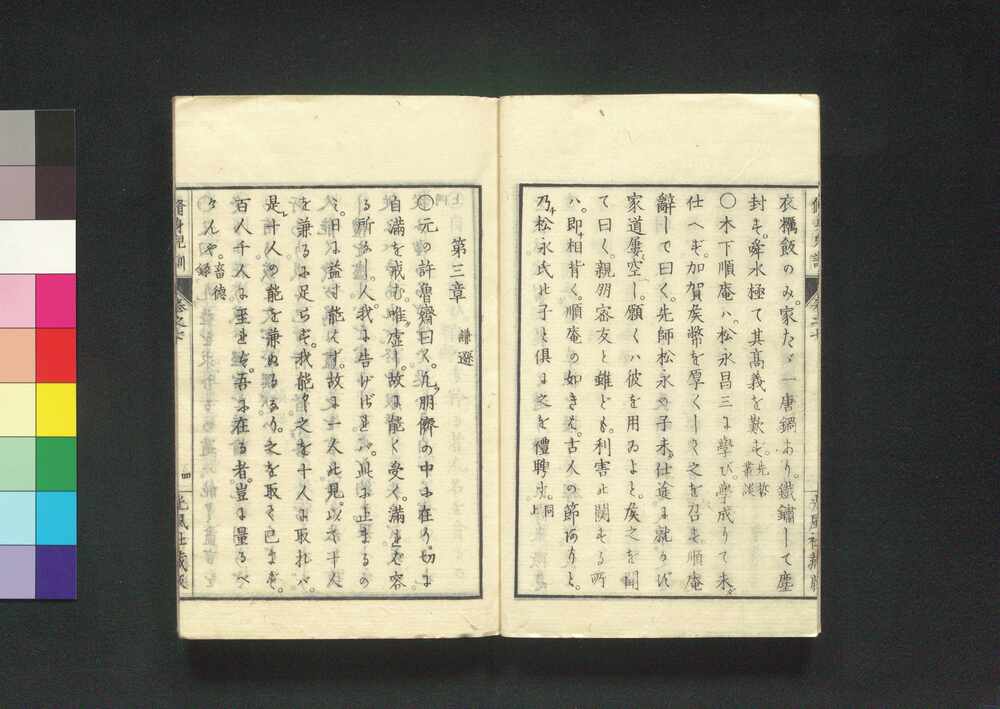 衣糲飯のみ。家たゞ一唐鍋あり。鐵鏽して塵
封ず。舜水極て其高義を歎ず。先哲叢談
〇木下順庵ハ、松永昌三に學び、學成りて未。
仕へず。加賀矦幣を厚くして之を召す。順庵
辭して曰く。先師松永の子未。仕途に就かず
家道屢空し。願くハ彼を用ゐよと。矦之を聞
て曰く。親朋密友と雖ども。利害に關する所
ハ。即相背く。順庵の如きは。古人の節ありと。
乃。松永氏の子と俱に之を禮聘す。同上
第三章
謙遜
〇元の許魯齋曰く。凡朋儕の中に在り。切に
自滿を戒む。唯虛し。故に能く受く。滿れバ容
る所なし。人。我に告げざれバ。此に止まるの
ミ。日に益す能はず。故に一人の見。以て十人
を兼るに足らず。我能く之を十人に取れバ。
是。十人の能を兼ぬるなり。之を取て已まず。
百人千人に至れバ。吾に在る者。豈に量るべ
けんや。畜德錄
脩身兒訓
卷之七
四
光風社藏版